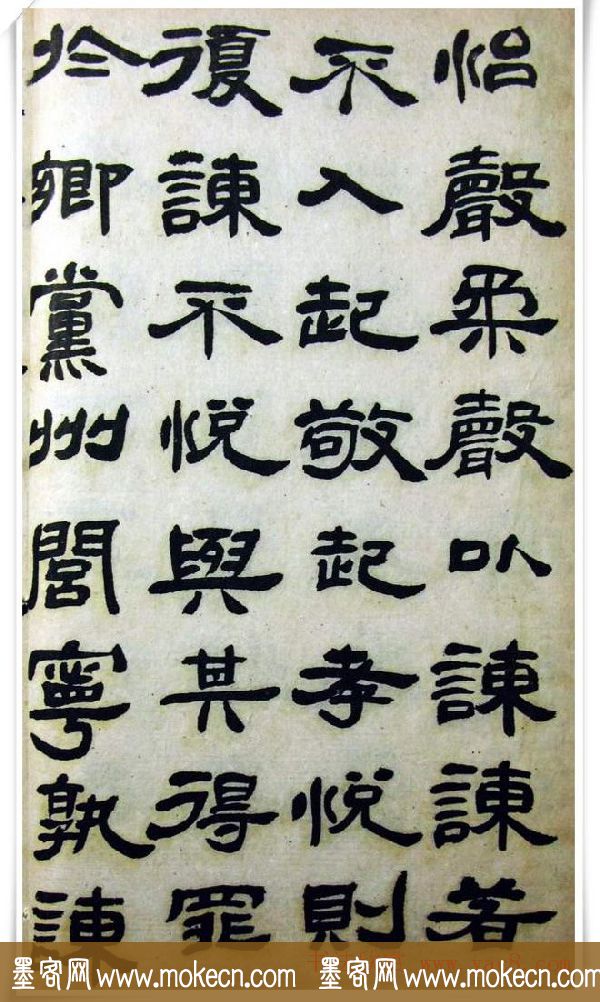 怡聲柔聲以諫諫若
不入起敬起孝悅則
復諫不悅與其得罪
於鄉黨州閭寧孰諫
墨客网 www.mokecn.com 墨客网 www.mokecn.com